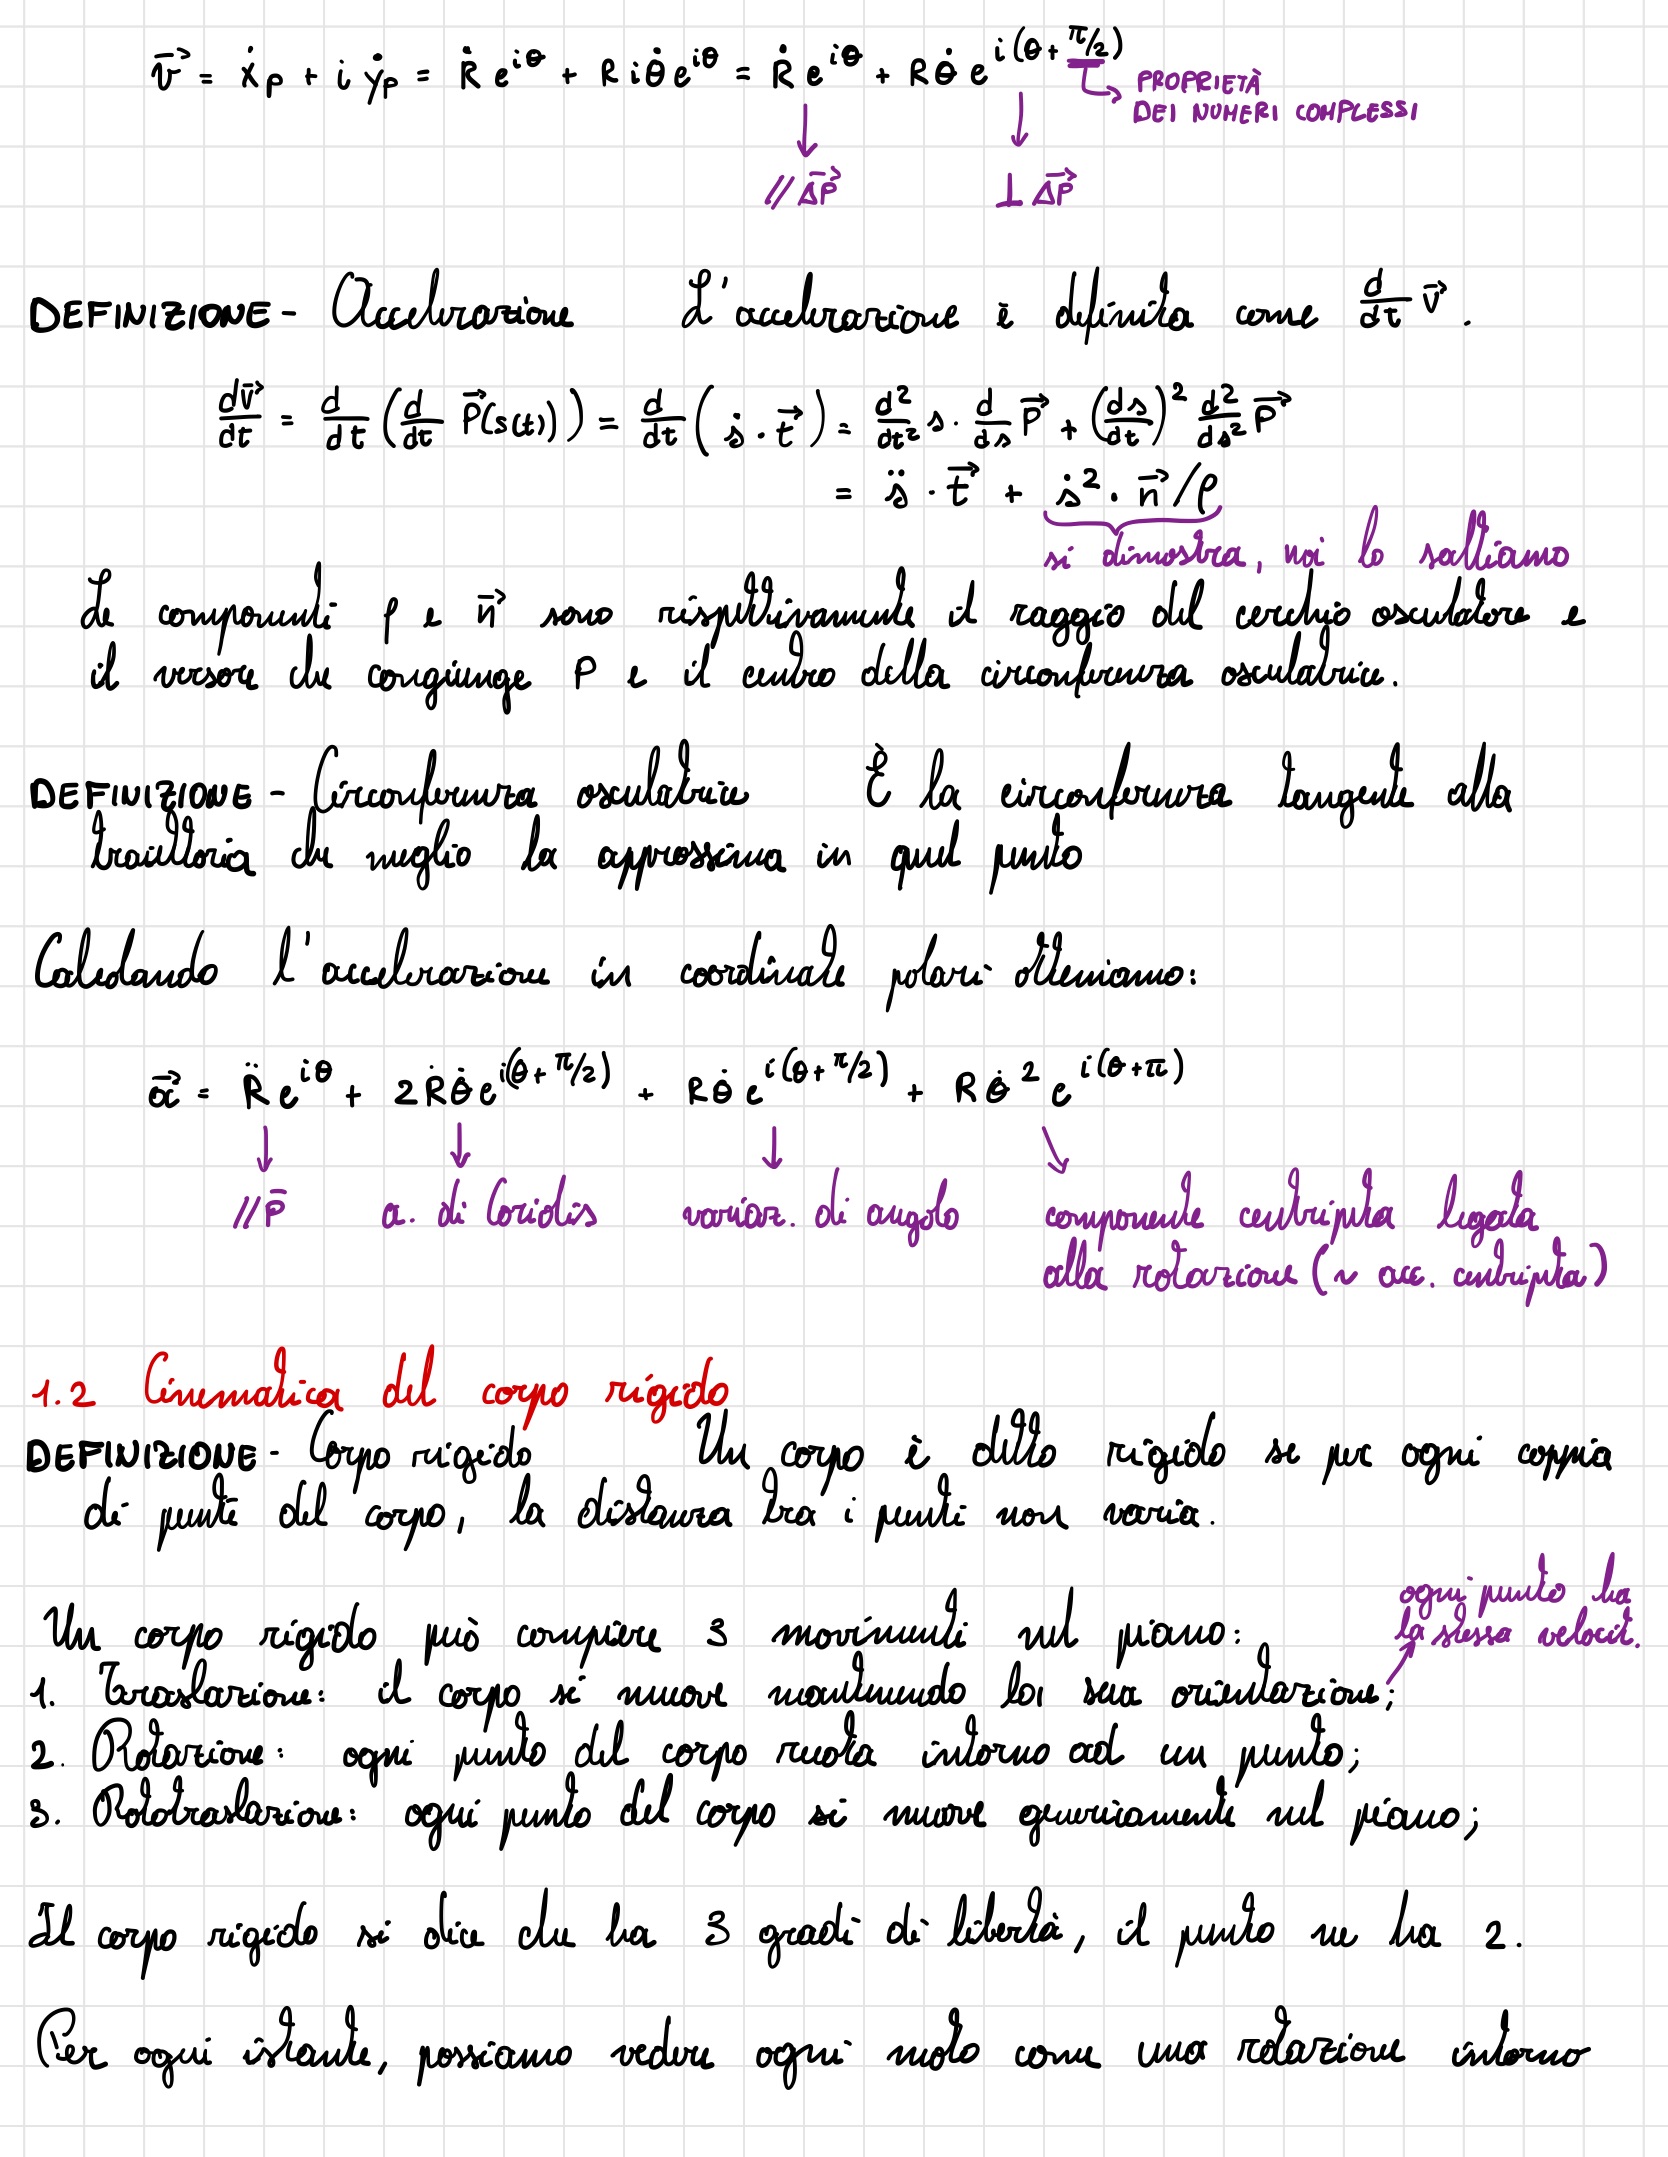 v⃗ = ẋp + i ẏp = Ṙ e^{iθ} + R i θ̇ e^{iθ} = Ṙ e^{iθ} + R θ̇ e^{i(θ+π/2)}
PROPRIETÀ
DEI NUMERI COMPLESSI
// ΔP⃗ ⊥ ΔP⃗
DEFINIZIONE - Accelerazione L'accelerazione è definita come d/dt v⃗.
dv⃗/dt = d/dt (d/dt P⃗(s(t))) = d/dt (ṡ · t⃗) = d²/dt² s · d/ds P⃗ + (ds/dt)² d²/ds² P⃗
= s̈ · t⃗ + ṡ² · n⃗/ρ
si dimostra, noi lo saltiamo
Le componenti ρ e n⃗ sono rispettivamente il raggio del cerchio osculatore e
il versore che congiunge P e il centro della circonferenza osculatrice.
DEFINIZIONE - Circonferenza osculatrice È la circonferenza tangente alla
traiettoria che meglio la approssima in quel punto
Calcolando l'accelerazione in coordinate polari otteniamo:
a⃗ = R̈ e^{iθ} + 2Ṙθ̇ e^{i(θ+π/2)} + Rθ̇ e^{i(θ+π/2)} + Rθ̇² e^{i(θ+π)}
// P̄ a. di Coriolis variaz. di angolo componente centripeta legata
alla rotazione (~ acc. centripeta)
1.2 Cinematica del corpo rigido
DEFINIZIONE - Corpo rigido Un corpo è detto rigido se per ogni coppia
di punti del corpo, la distanza tra i punti non varia.
ogni punto ha
la stessa velocit.
Un corpo rigido può compiere 3 movimenti nel piano:
1. Traslazione: il corpo si muove mantenendo la sua orientazione;
2. Rotazione: ogni punto del corpo ruota intorno ad un punto;
3. Rototraslazione: ogni punto del corpo si muove genericamente nel piano;
Il corpo rigido si dice che ha 3 gradi di libertà, il punto ne ha 2.
Per ogni istante, possiamo vedere ogni moto come una rotazione intorno